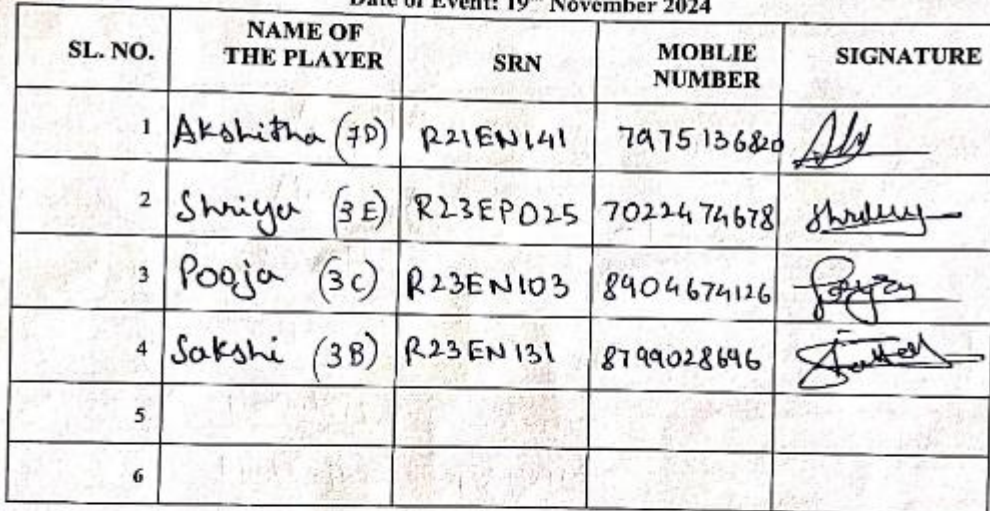 Date of Event: 19th November 2024
SL. NO. NAME OF THE PLAYER SRN MOBLIE NUMBER SIGNATURE
1 Akshitha (7D) R21EN141 7975136820
2 Shriya (3E) R23EPO25 7022474678
3 Pooja (3C) R23EN103 8904674126
4 Sakshi (3B) R23EN131 8799028696
5
6